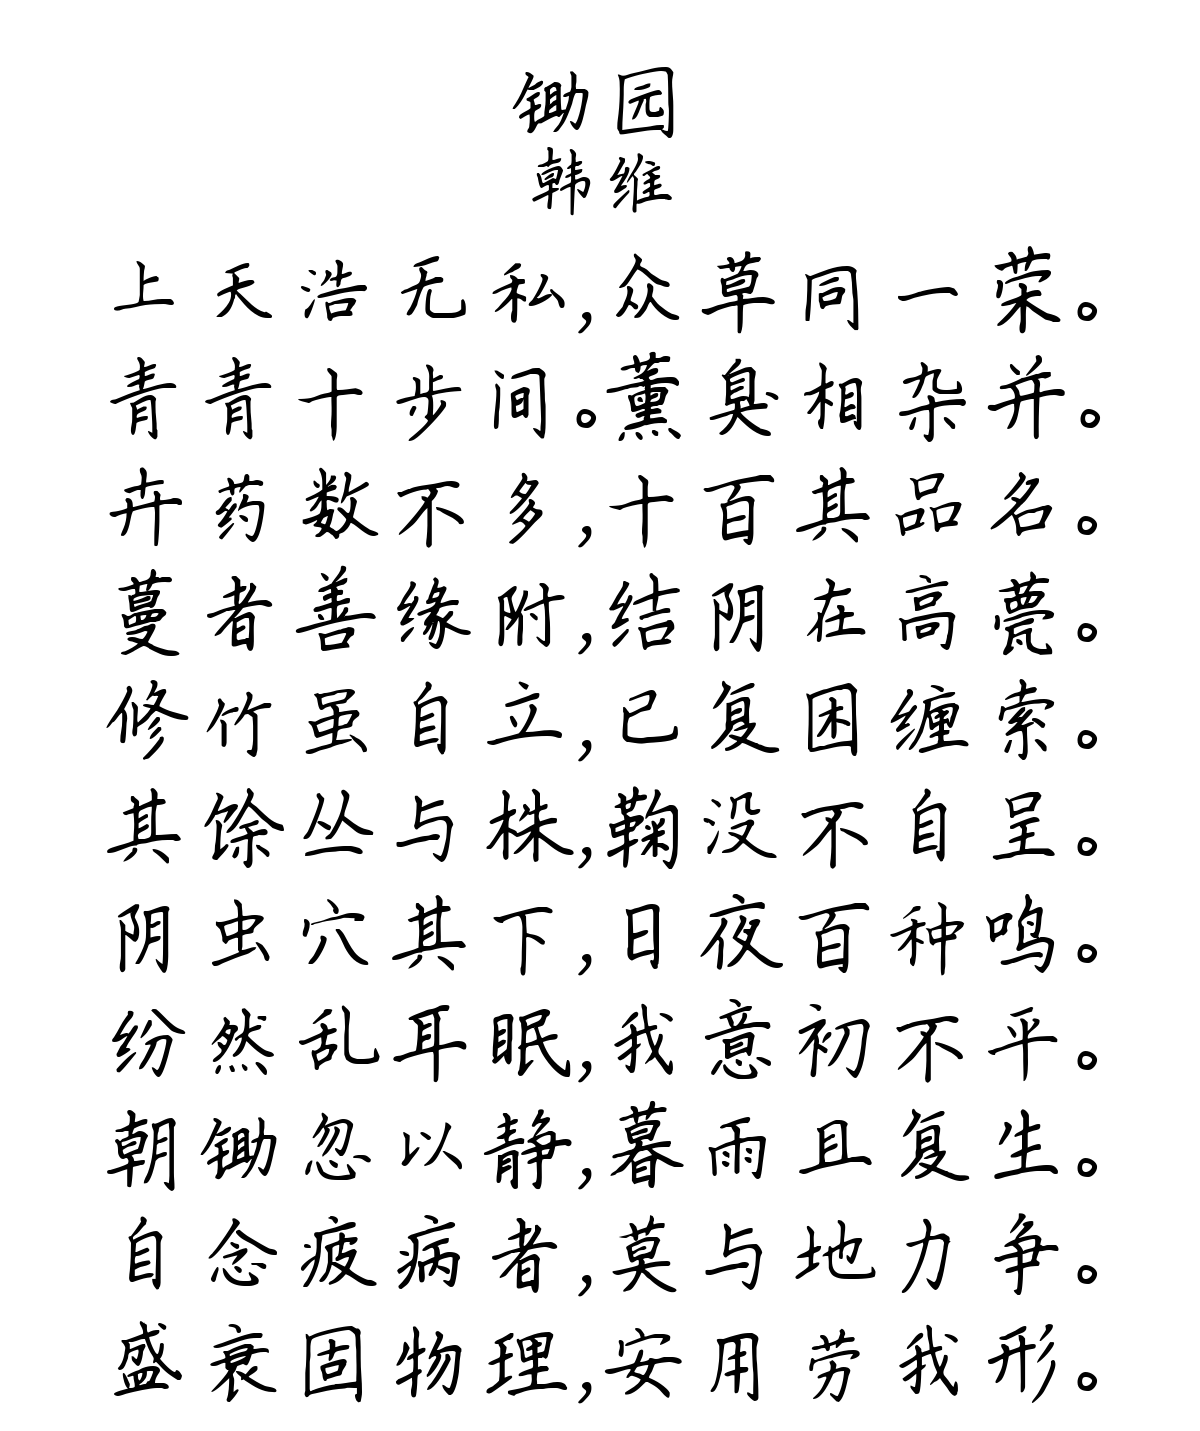 锄园
韩维
上天浩无私,众草同一荣。
青青十步间。薰臭相杂并。
卉药数不多,十百其品名。
蔓者善缘附,结阴在高甍。
修竹虽自立,已复困缠索。
其馀丛与株,鞠没不自呈。
阴虫穴其下,日夜百种鸣。
纷然乱耳眠,我意初不平。
朝锄忽以静,暮雨且复生。
自念疲病者,莫与地力争。
盛衰固物理,安用劳我形。